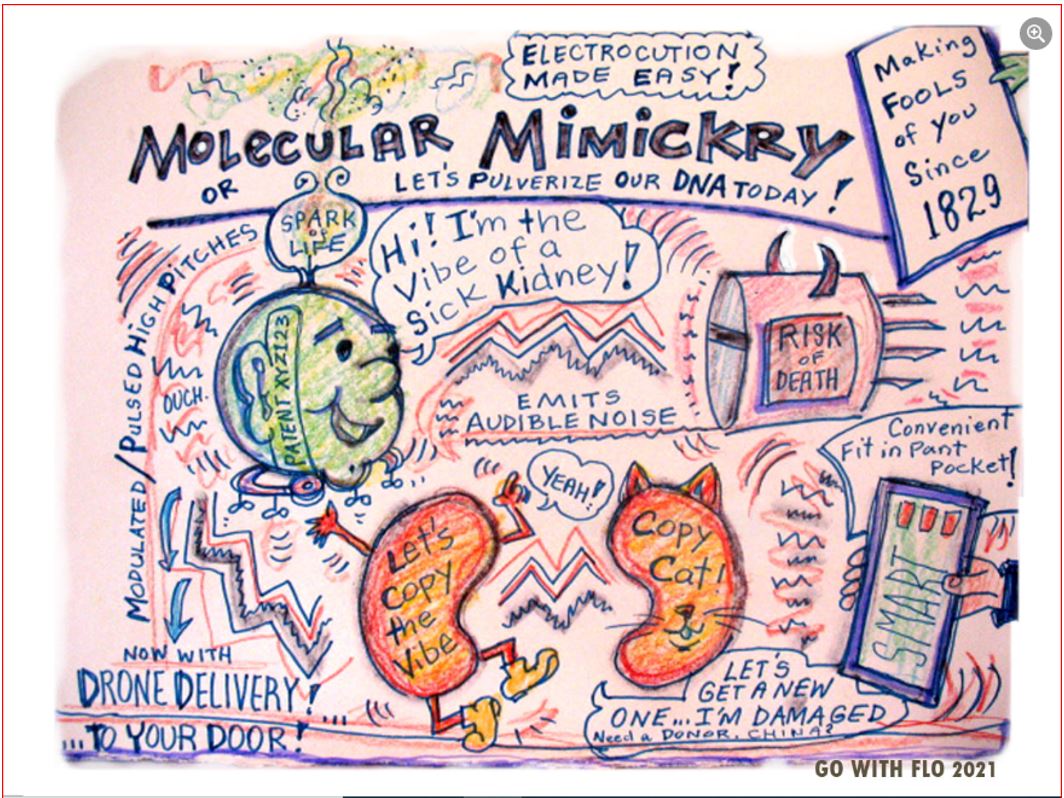 ELECTROCUTION
MADE EASY!
Making
FOOLS
of you
Since
1829
MOLECULAR MIMICKRY
OR
LET'S PULVERIZE OUR DNA TODAY!
SPARK
OF
LIFE
Hi! I'm the
Vibe of a
Sick Kidney!
MODULATED/PULSED HIGH PITCHES
OUCH.
PATENT XYZ123
RISK
OF
DEATH
EMITS
AUDIBLE NOISE
Convenient
Fit in Pant
Pocket!
YEAH!
Let's
copy
the
Vibe
Copy
Cat!
SMART
NOW WITH
DRONE DELIVERY! ...
...TO YOUR DOOR!
LET'S
GET A NEW
ONE... I'M DAMAGED
Need a DONOR, CHINA?
GO WITH FLO 2021